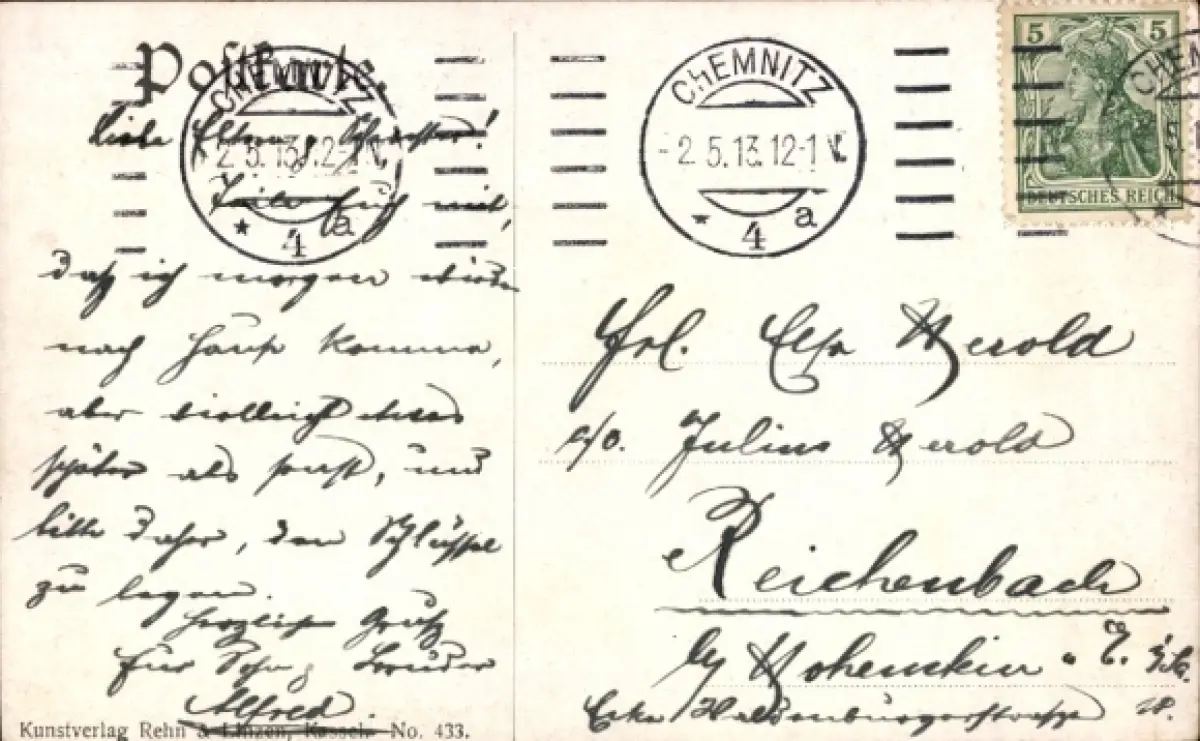 Postkarte.
CHEMNITZ
-2.5.13.12-1 V.
* 4 a
Liebe Eltern u. Schwester!
Teile Euch mit,
daß ich morgen wieder
nach Hause komme,
aber vielleicht etwas
später als sonst, und
bitte daher, den Schlüssel
zu legen.
Herzlichen Gruß
Euer Sohn u. Bruder
Alfred.
Kunstverlag Rehn & Linzen, Kassel. No. 433.
ChEMNITZ
-2.5.13.12-1 V.
* 4 a
5 5
DEUTSCHES REICH
CHEMN
Frl. Elsa Herold
c/o. Julius Herold
Reichenbach
by Hohenstein - E.
Ecke Waldenburgerstrasse